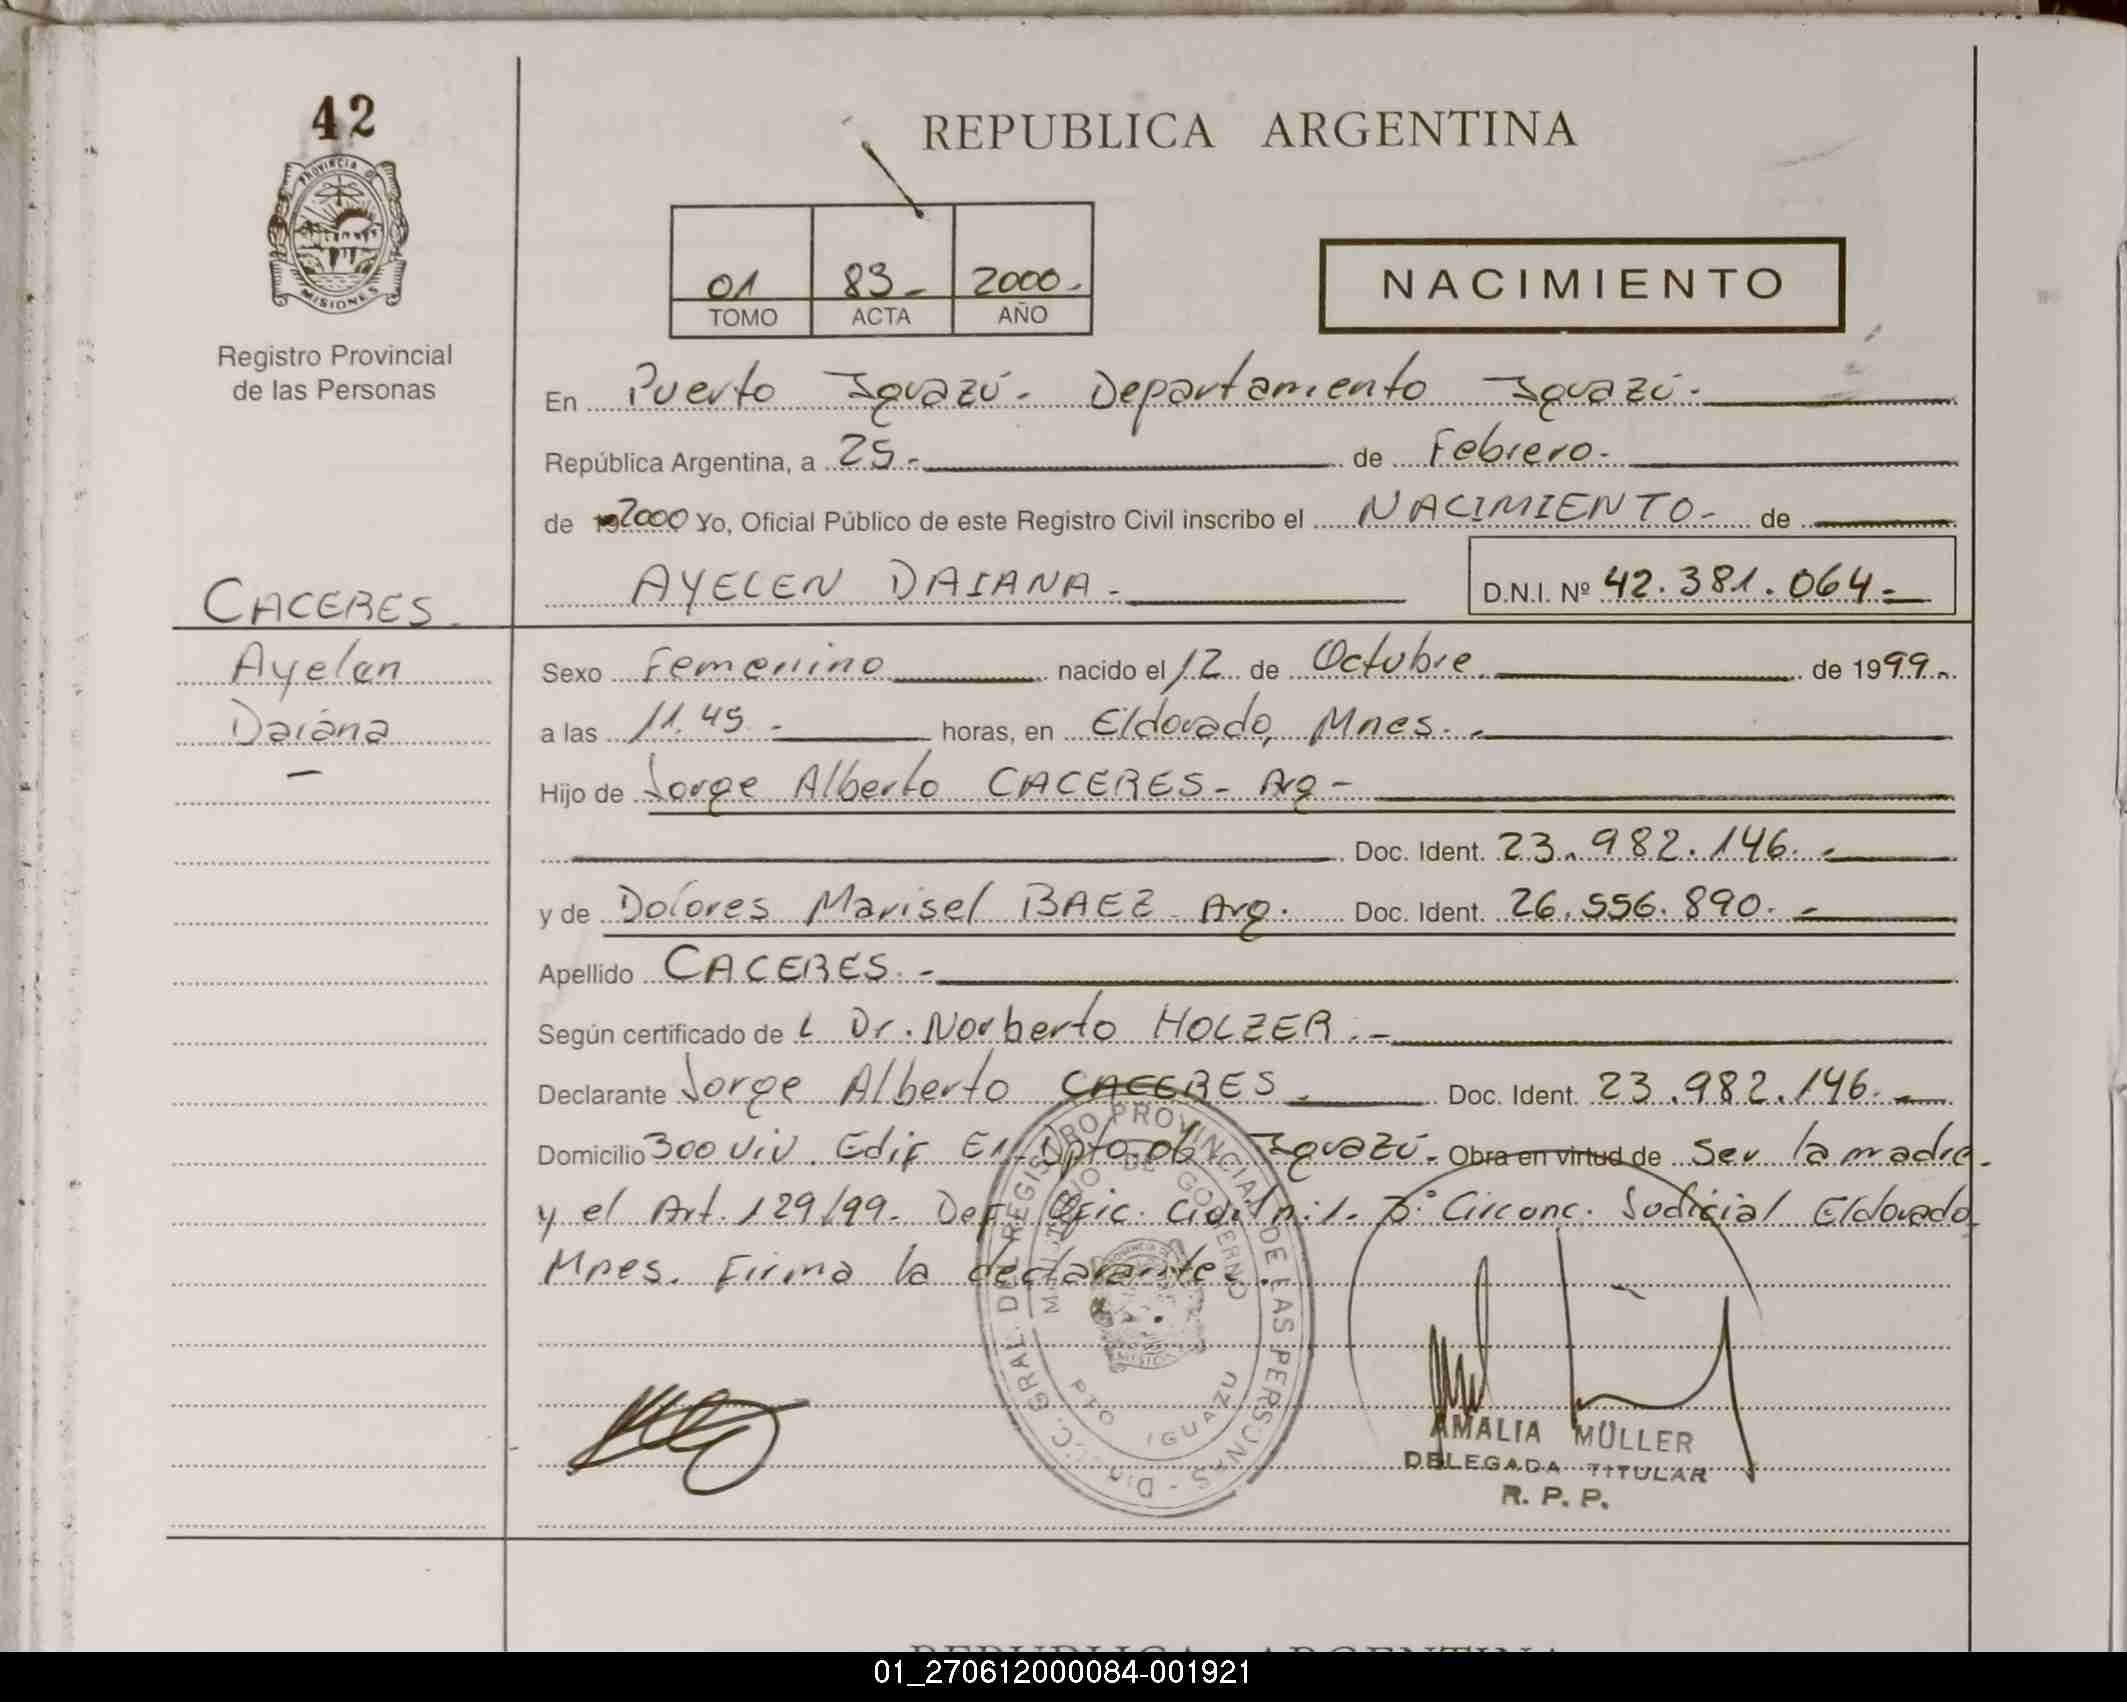 42
PROVINCIA DE
MISIONES
Registro Provincial
de las Personas
REPUBLICA ARGENTINA
01 83- 2000.
TOMO ACTA AÑO
NACIMIENTO
En Puerto Iguazú. Departamento Iguazú.
República Argentina, a 25- de Febrero.
de 2000 Yo, Oficial Público de este Registro Civil inscribo el NACIMIENTO- de
AYELEN DAIANA. D.N.I. Nº 42.381.064-
CACERES.
Ayelen
Daiana
Sexo Femenino nacido el 12 de Octubre de 1999.
a las 11.45 - horas, en Eldorado, Mnes.
Hijo de Jorge Alberto CACERES- Arg-
Doc. Ident. 23.982.146.-
y de Dolores Marisel BAEZ Arg. Doc. Ident. 26.556.890.-
Apellido CACERES.-
Según certificado de L Dr. Norberto HOLZER.-
Declarante Jorge Alberto CACERES Doc. Ident. 23.982.146.
Domicilio 300 Viv. Edif E1 Dpto 06 Iguazú. Obra en virtud de Ser la madre.
y el Art. 129/99. Def. Ofic. Civil n:1. 3° Circunc. Judicial Eldorado,
Mnes. Firma la declarante.
DIR. GRAL. DEL REGISTRO PROVINCIAL DE LAS PERSONAS
MINISTERIO DE GOBIERNO
PROVINCIA DE
MISIONES
PTO IGUAZU
AMALIA MÜLLER
DELEGADA TITULAR
R. P. P.
REPUBLICA ARGENTINA
01_270612000084-001921